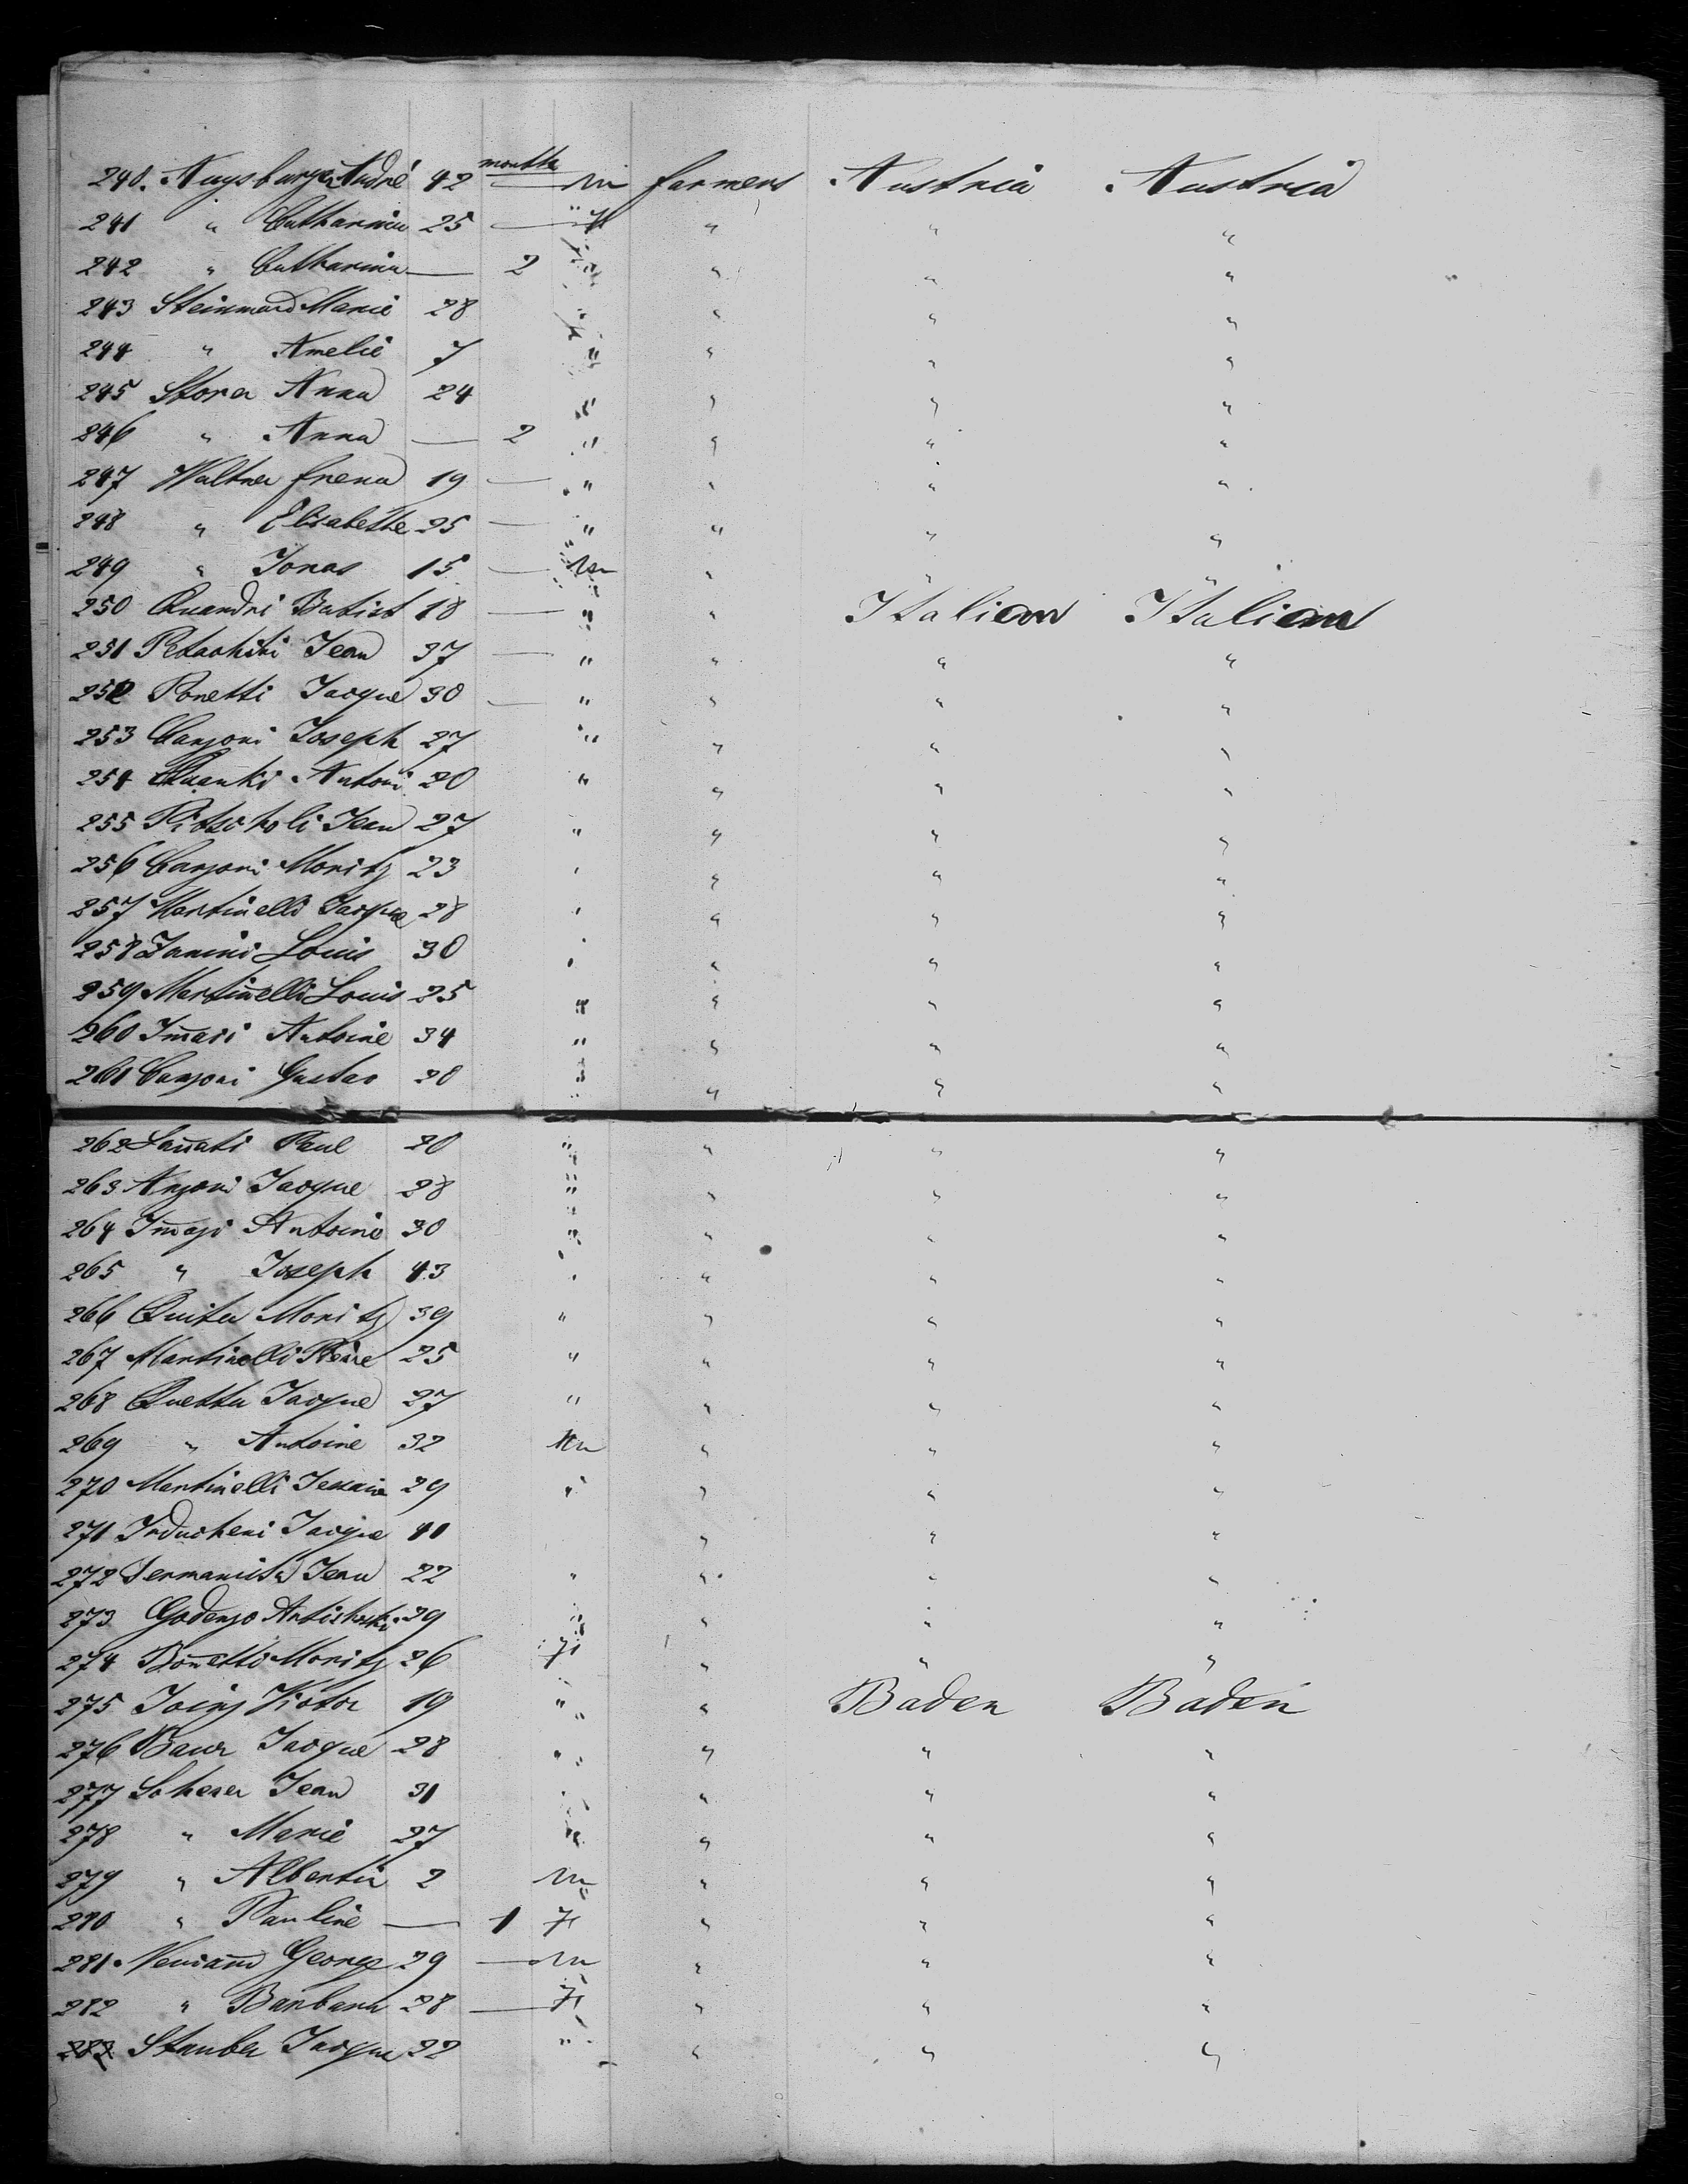 months
240. Augsburger André 42 — m farmers Austria Austria
241 " Catharina 25 — f " " "
242 " Catharina — 2 " " " "
243 Steinmard Marie 28 " " " "
244 " Amelie 7 " " " "
245 Storer Anna 24 " " " "
246 " Anna — 2 " " " "
247 Waltner frena 19 — " " " "
248 " Elisabethe 25 — " " " "
249 " Jonas 15 — m " " "
250 Quandri Batist 18 — " " Italian Italian
251 Jean 37 — " " " "
252 Ponetti Jacque 30 — " " " "
253 Canzoni Joseph 27 " " " "
254 Quanki Antoni 20 " " " "
255 Pitscholi Jean 27 " " " "
256 Canzoni Moritz 23 " " " "
257 Martinelli Jacque 28 " " " "
258 Janini Louis 30 " " " "
259 Martinelli Louis 25 " " " "
260 Antoine 34 " " " "
261 Canzoni Gustav 20 " " " "
262 Lan̄ati Paul 20 " " " "
263 Anzoni Jacque 28 " " " "
264 Antoine 30 " " " "
265 " Joseph 43 " " " "
266 Quita Moritz 39 " " " "
267 Martinelli Pierre 25 " " " "
268 Quetta Jacque 27 " " " "
269 " Antoine 32 m " " "
270 Martinelli 29 " " " "
271 Inducheni Jacque 40 " " "
272 Jean 22 " " " "
273 Godenzo 29 " " " "
274 Bon̄etti Moritz 26 f " " "
275 Joinz Victor 19 " " Baden Baden
276 Baur Jacque 28 " " " "
277 Scherer Jean 31 " " " "
278 " Marie 27 " " " "
279 " Albertir 2 m " " "
280 " Pauline — 1 f " " "
281 George 29 — m " " "
282 " Barbara 28 — f " " "
283 Stauber Jacque 22 " " " "